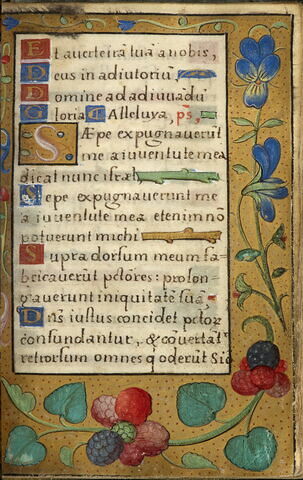 Et auerte irā tuā a nobis,
Deus in adiutoriū
Domine ad adiuuādū
Gloria Alleluya, ps,
Sæpe expugnauerūt
me a iuuentute mea
dicat nunc israł
Sepe expugnauerunt me
a iuuentute mea etenim nō
potuerunt michi
Supra dorsum meum fa-
bricauerūt pctōres: prolon-
gauerunt iniquitatē suā
Dn̄s iustus concidet pctor̄
confundantur, & cōuertāt᷑
retrorsum omnes q oderūt Sio